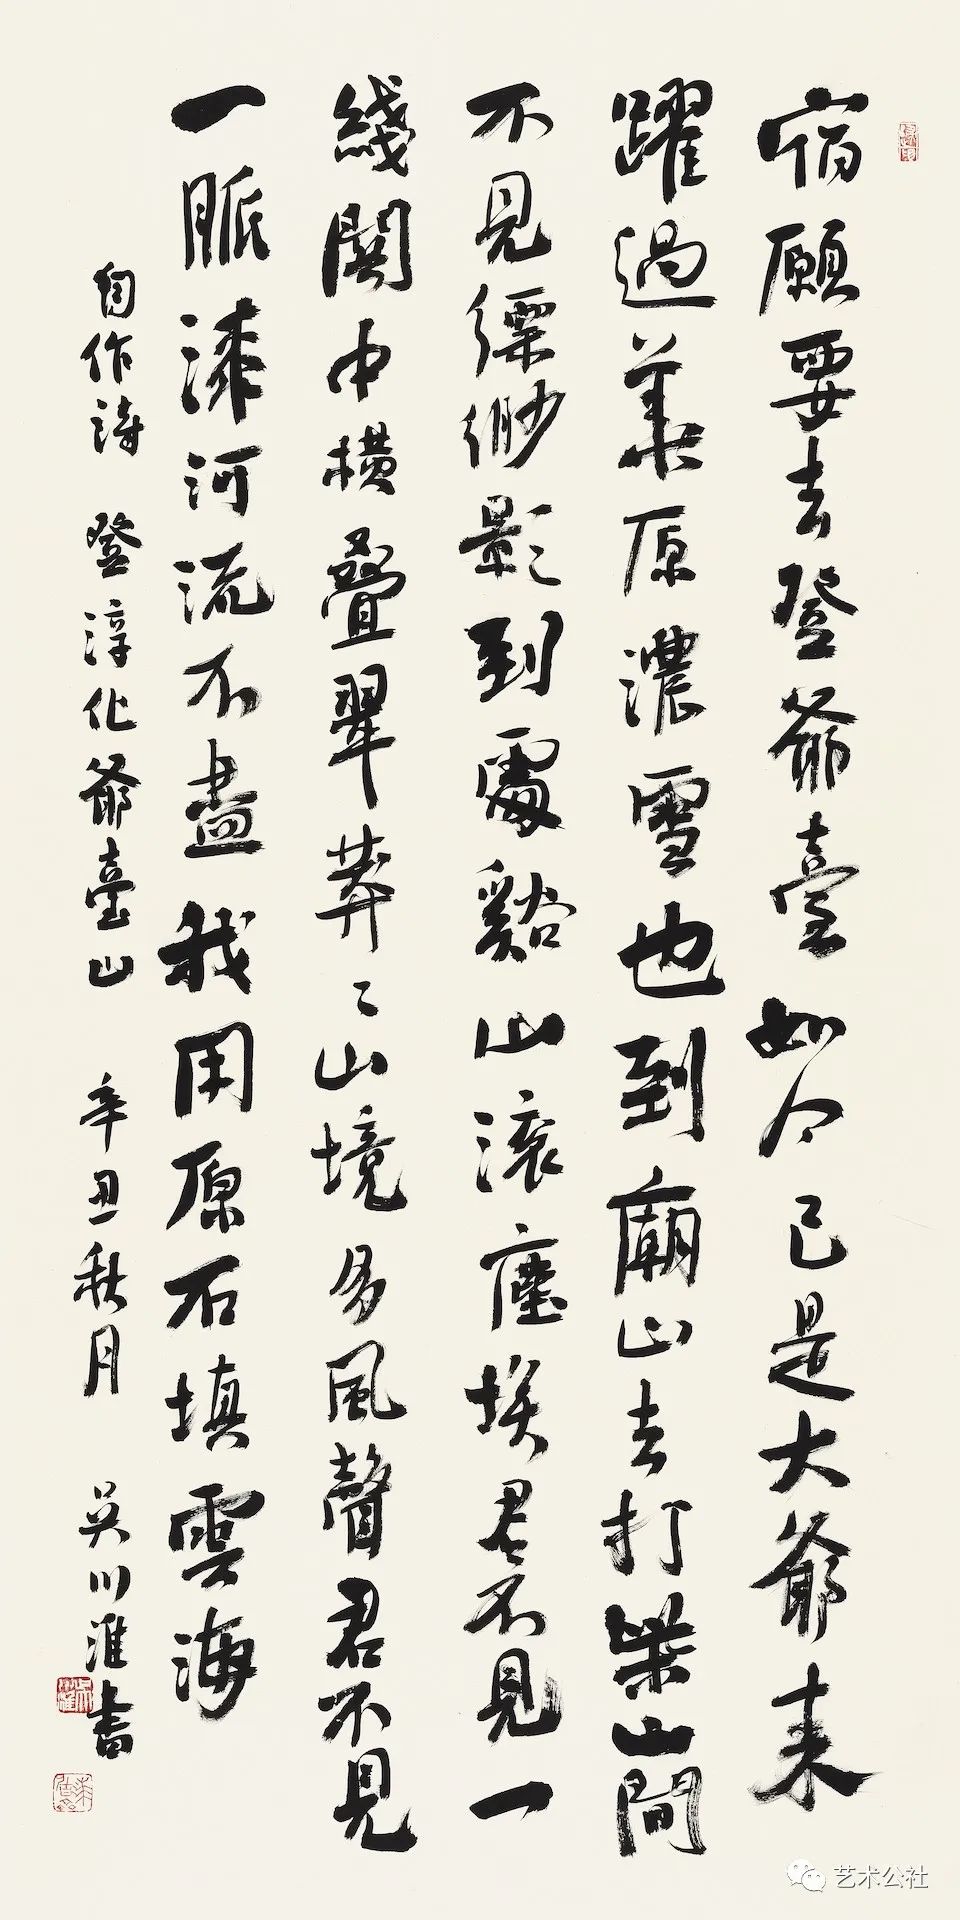 宿願要去登爺臺如今已是大爺来
躍過美原濃雪也到廟山去打柴山間
不見縹緲影到處谿山滾塵埃君不見一
綫關中横疊翠莽〻山境多風聲君不見
一脈漆河流不盡我用原石填雲海
自作詩 登淳化爺臺山 辛丑秋月 吴川淮書
艺术公社